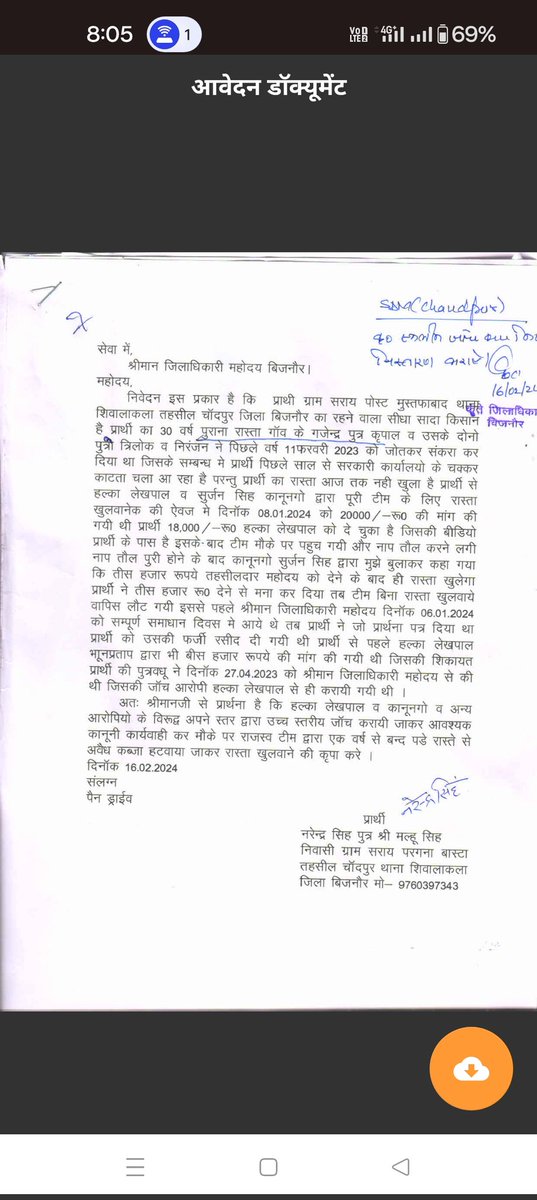 8:05
1
VoD LTE2 4G+ 69%
आवेदन डॉक्यूमेंट
SDM (Chandpur)
16/02/24
जिलाधिका
बिजनौर
सेवा में,
श्रीमान जिलाधिकारी महोदय बिजनौर।
महोदय,
निवेदन इस प्रकार है कि प्रार्थी ग्राम सराय पोस्ट मुस्तफाबाद थाना
शिवालाकला तहसील चॉदपुर जिला बिजनौर का रहने वाला सीधा सादा किसान
है प्रार्थी का 30 वर्ष पुराना रास्ता गॉव के गजेन्द्र पुत्र कृपाल व उसके दोनो
पुत्रो त्रिलोक व निरंजन ने पिछले वर्ष 11फरवरी 2023 को जोतकर संकरा कर
दिया था जिसके सम्बन्ध मे प्रार्थी पिछले साल से सरकारी कार्यालयो के चक्कर
काटता चला आ रहा है परन्तु प्रार्थी का रास्ता आज तक नही खुला है प्रार्थी से
हल्का लेखपाल व सुर्जन सिंह कानूनगो द्वारा पूरी टीम के लिए रास्ता
खुलवानेक की ऐवज मे दिनॉक 08.01.2024 को 20000/–रू0 की मांग की
गयी थी प्रार्थी 18,000/–रू0 हल्का लेखपाल को दे चुका है जिसकी बीडियो
प्रार्थी के पास है इसके बाद टीम मौके पर पहुच गयी और नाप तौल करने लगी
नाप तौल पुरी होने के बाद कानूनगो सुर्जन सिंह द्वारा मुझे बुलाकर कहा गया
कि तीस हजार रूपये तहसीलदार महोदय को देने के बाद ही रास्ता खुलेगा
प्रार्थी ने तीस हजार रू0 देने से मना कर दिया तब टीम बिना रास्ता खुलवाये
वापिस लौट गयी इससे पहले श्रीमान जिलाधिकारी महोदय दिनॉक 06.01.2024
को सम्पूर्ण समाधान दिवस मे आये थे तब प्रार्थी ने जो प्रार्थना पत्र दिया था
प्रार्थी को उसकी फर्जी रसीद दी गयी थी प्रार्थी से पहले हल्का लेखपाल
भानूप्रताप द्वारा भी बीस हजार रूपये की मांग की गयी थी जिसकी शिकायत
प्रार्थी की पुत्रवधू ने दिनॉक 27.04.2023 को श्रीमान जिलाधिकारी महोदय से की
थी जिसकी जॉच आरोपी हल्का लेखपाल से ही करायी गयी थी ।
अतः श्रीमानजी से प्रार्थना है कि हल्का लेखपाल व कानूनगो व अन्य
आरोपियो के विरूद्व अपने स्तर द्वारा उच्च स्तरीय जॉच करायी जाकर आवश्यक
कानूनी कार्यवाही कर मौके पर राजस्व टीम द्वारा एक वर्ष से बन्द पडे रास्ते से
अवैध कब्जा हटवाया जाकर रास्ता खुलवाने की कृपा करे ।
दिनॉक 16.02.2024
संलग्न
पैन ड्राईव
नरेन्द्र सिंह
प्रार्थी
नरेन्द्र सिंह पुत्र श्री मल्हू सिंह
निवासी ग्राम सराय परगना बास्टा
तहसील चॉदपुर थाना शिवालाकला
जिला बिजनौर मो– 9760397343